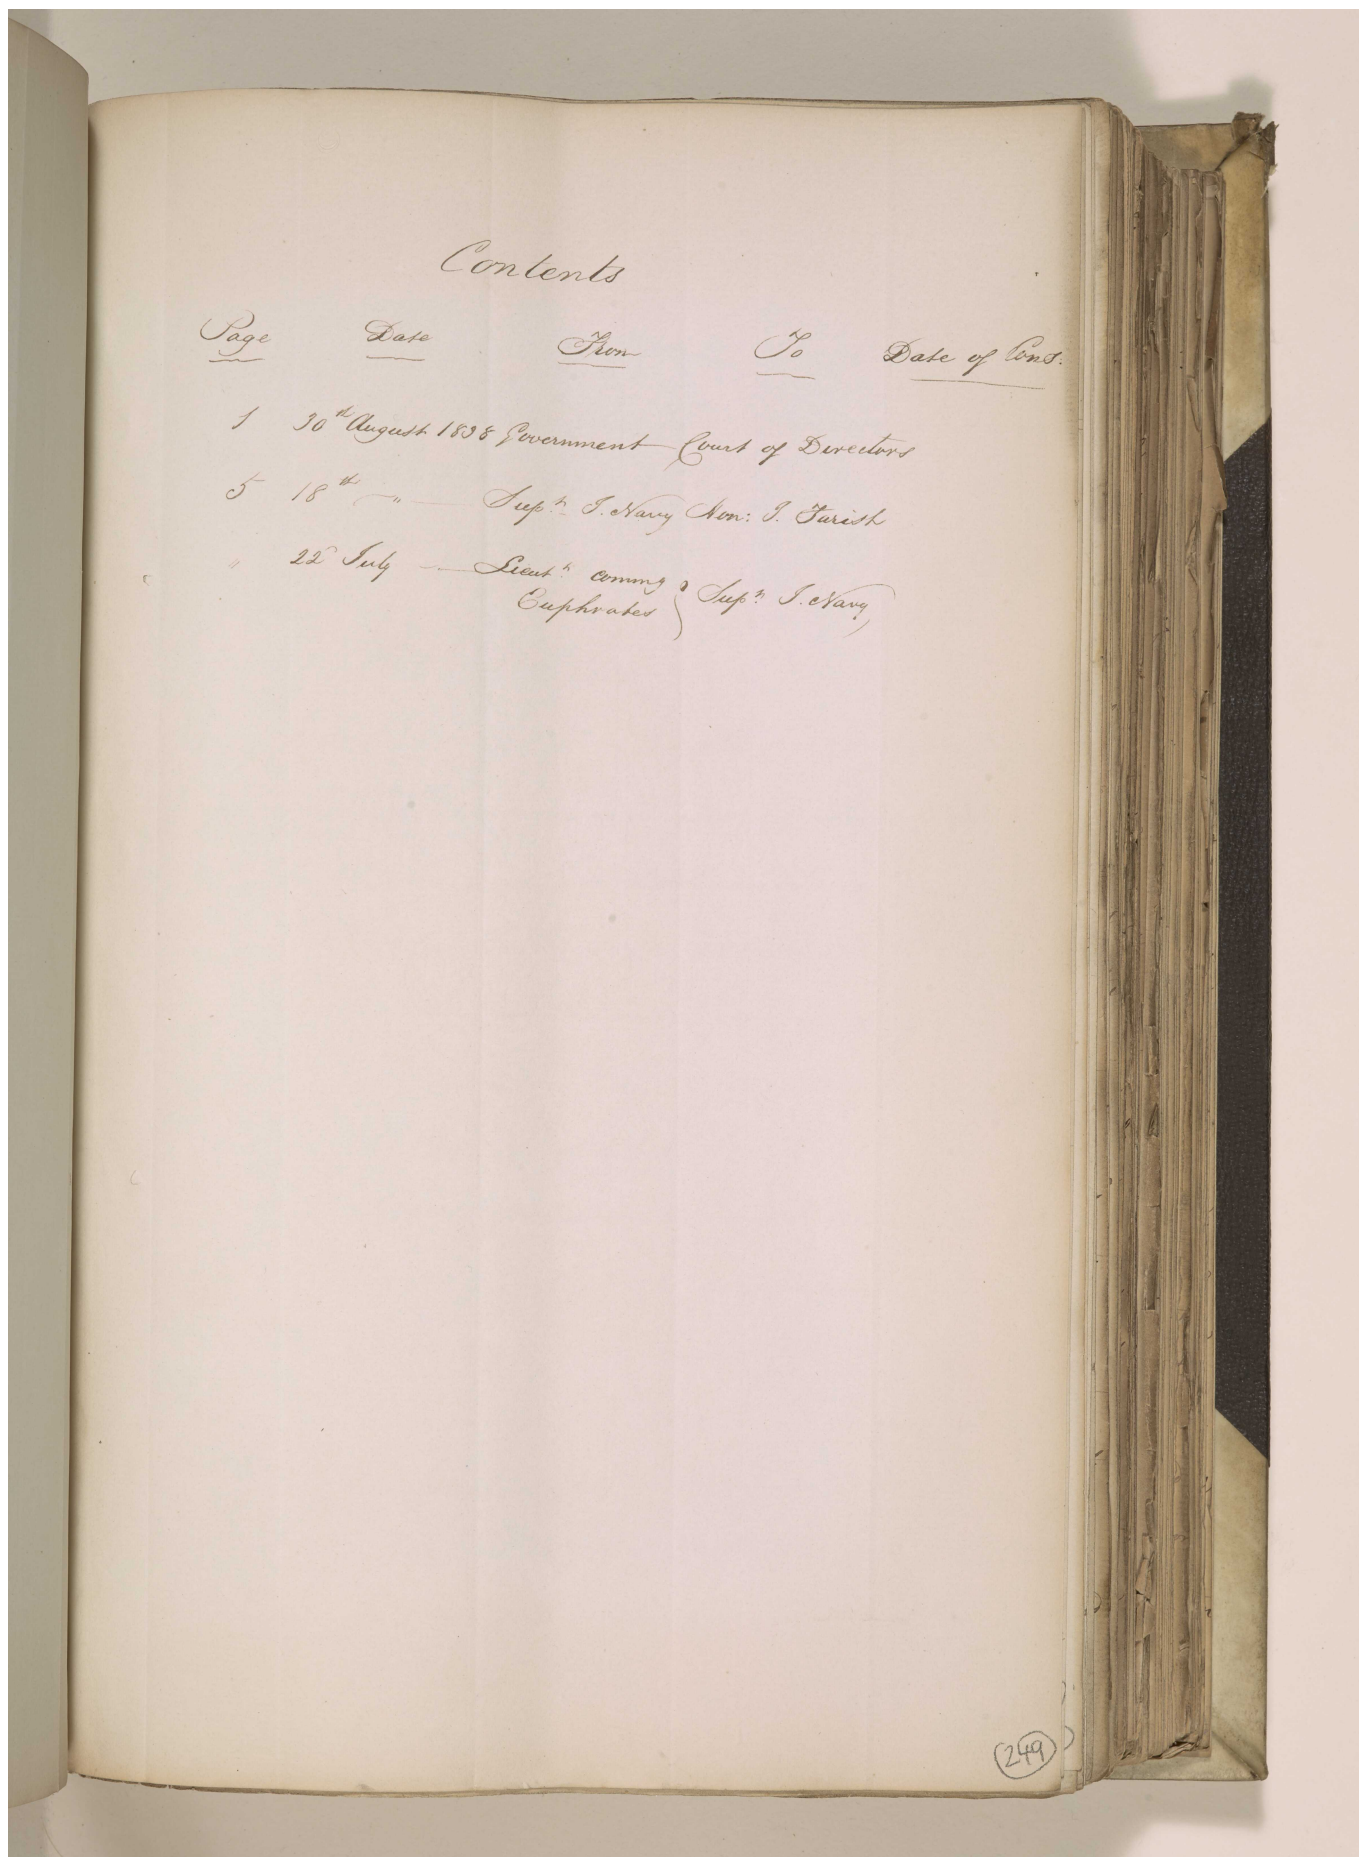 Contents
Page Date From To Date of Cons:
1 30th August 1838 Government Court of Directors
5 18th " Supt. I. Navy Hon: J. Farish
" 22d July Lieut. commg } Supt. I. Navy
Euphrates
249